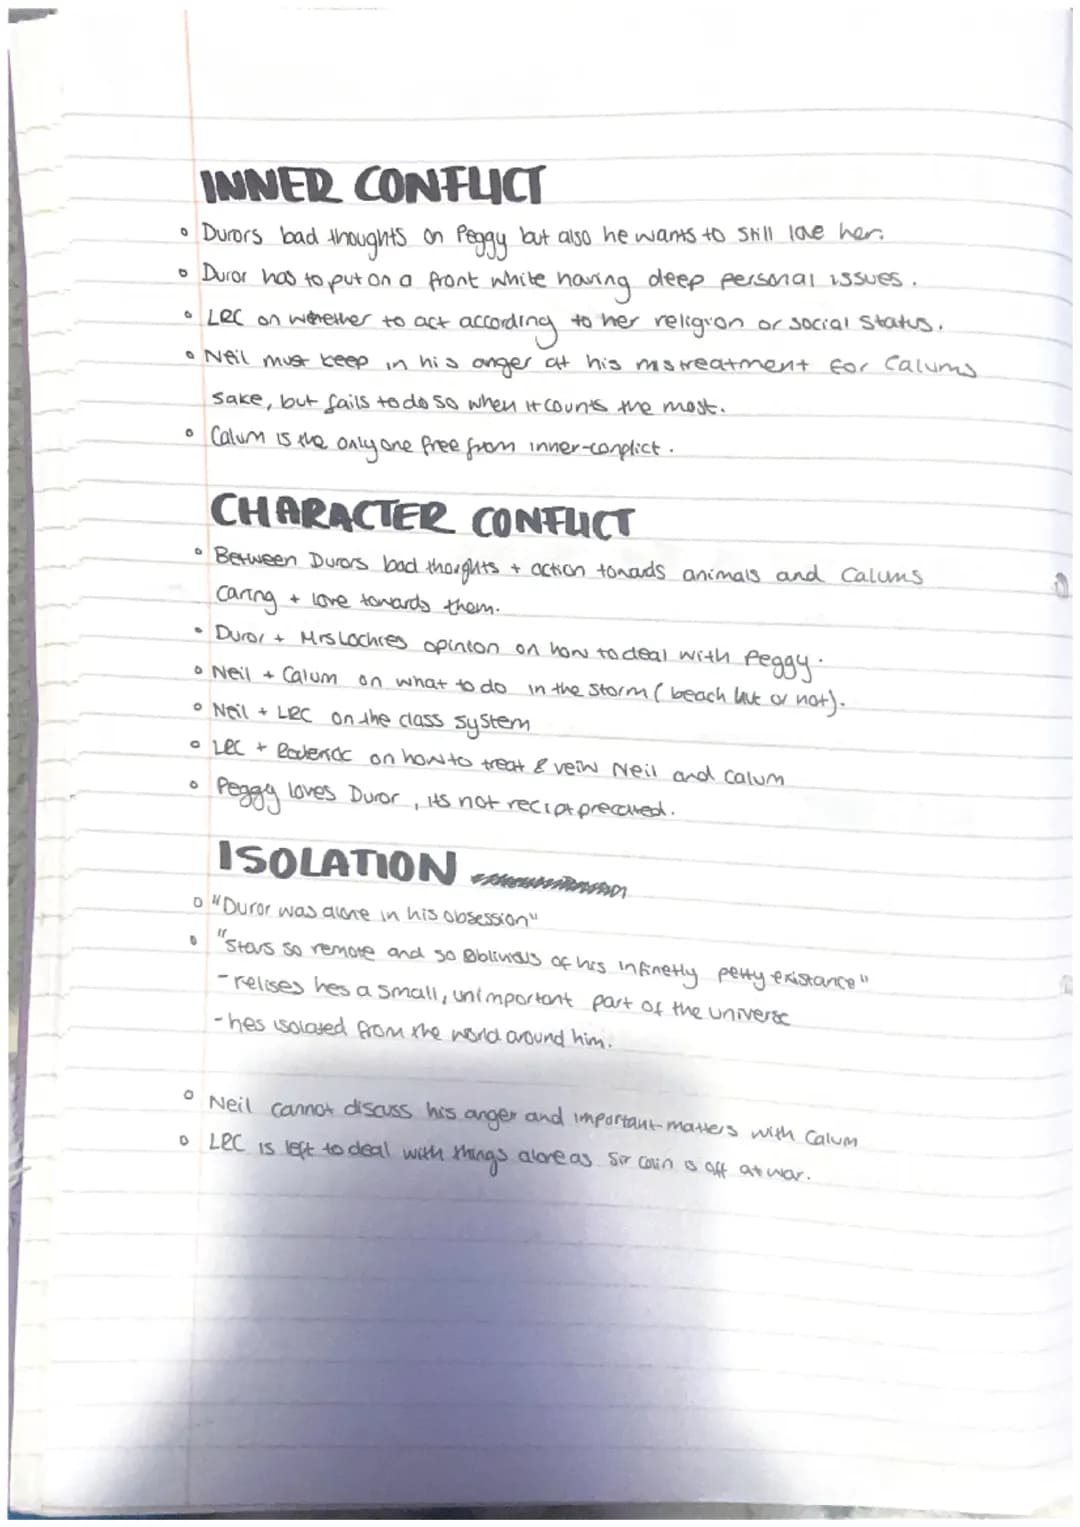 INNER CONFLICT
Durors bad thoughts on Peggy but also he wants to still love her.
Duror has to put on a front while having deep personal issues.
LRC on whether to act according to her religion or social status.
Neil must keep in his anger at his mistreatment for Calums
sake, but fails to do so when it counts the most.
Calum is the only one free from inner-conflict.
CHARACTER CONFLICT
Between Durors bad thoughts + action towards animals and Calums
caring + love towards them.
Duror + Mrs Lochies opinion on how to deal with Peggy.
Neil + Calum on what to do in the storm (beach hut or not).
Neil + LRC on the class system
LRC + Roderick on how to treat & veiw Neil and Calum
Peggy loves Duror, its not reciprecated.
ISOLATION
"Duror was alone in his obsession"
"Stars so remote and so oblivious of his infinetly petty existance"
- relises hes a small, unimportant part of the universe
- hes isolated from the world around him.
Neil cannot discuss his anger and important matters with Calum
LRC is left to deal with things alone as Sir Colin is off at war.